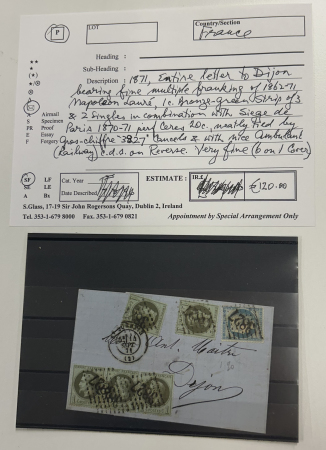 P
LOT
Country/Section
France
Heading :
Sub-Heading :
Description : 1871, Entire letter to Dijon
bearing fine multiple franking of 1862-71,
Napoleon Lauré, 1c. Bronze-green Strip of 3
& 2 Singles in combination with Siege de
Paris 1870-71 perf Ceres 20c. neatly tied by
Gros-chiffre '3827' Cancels & with nice Ambulant
(Railway) c.d.s. on Reverse. Very fine (6 on 1 Cover)
Airmail
S Specimen
PR Proof
E Essay
F Forgery
SF LF
SE LE
A Rs
Cat. Year
Date Described
ESTIMATE :
IR£
€120.00
S.Glass, 17-19 Sir John Rogersons Quay, Dublin 2, Ireland
Tel. 353-1-679 8000 Fax. 353-1-679 0821
Appointment by Special Arrangement Only
Dijon